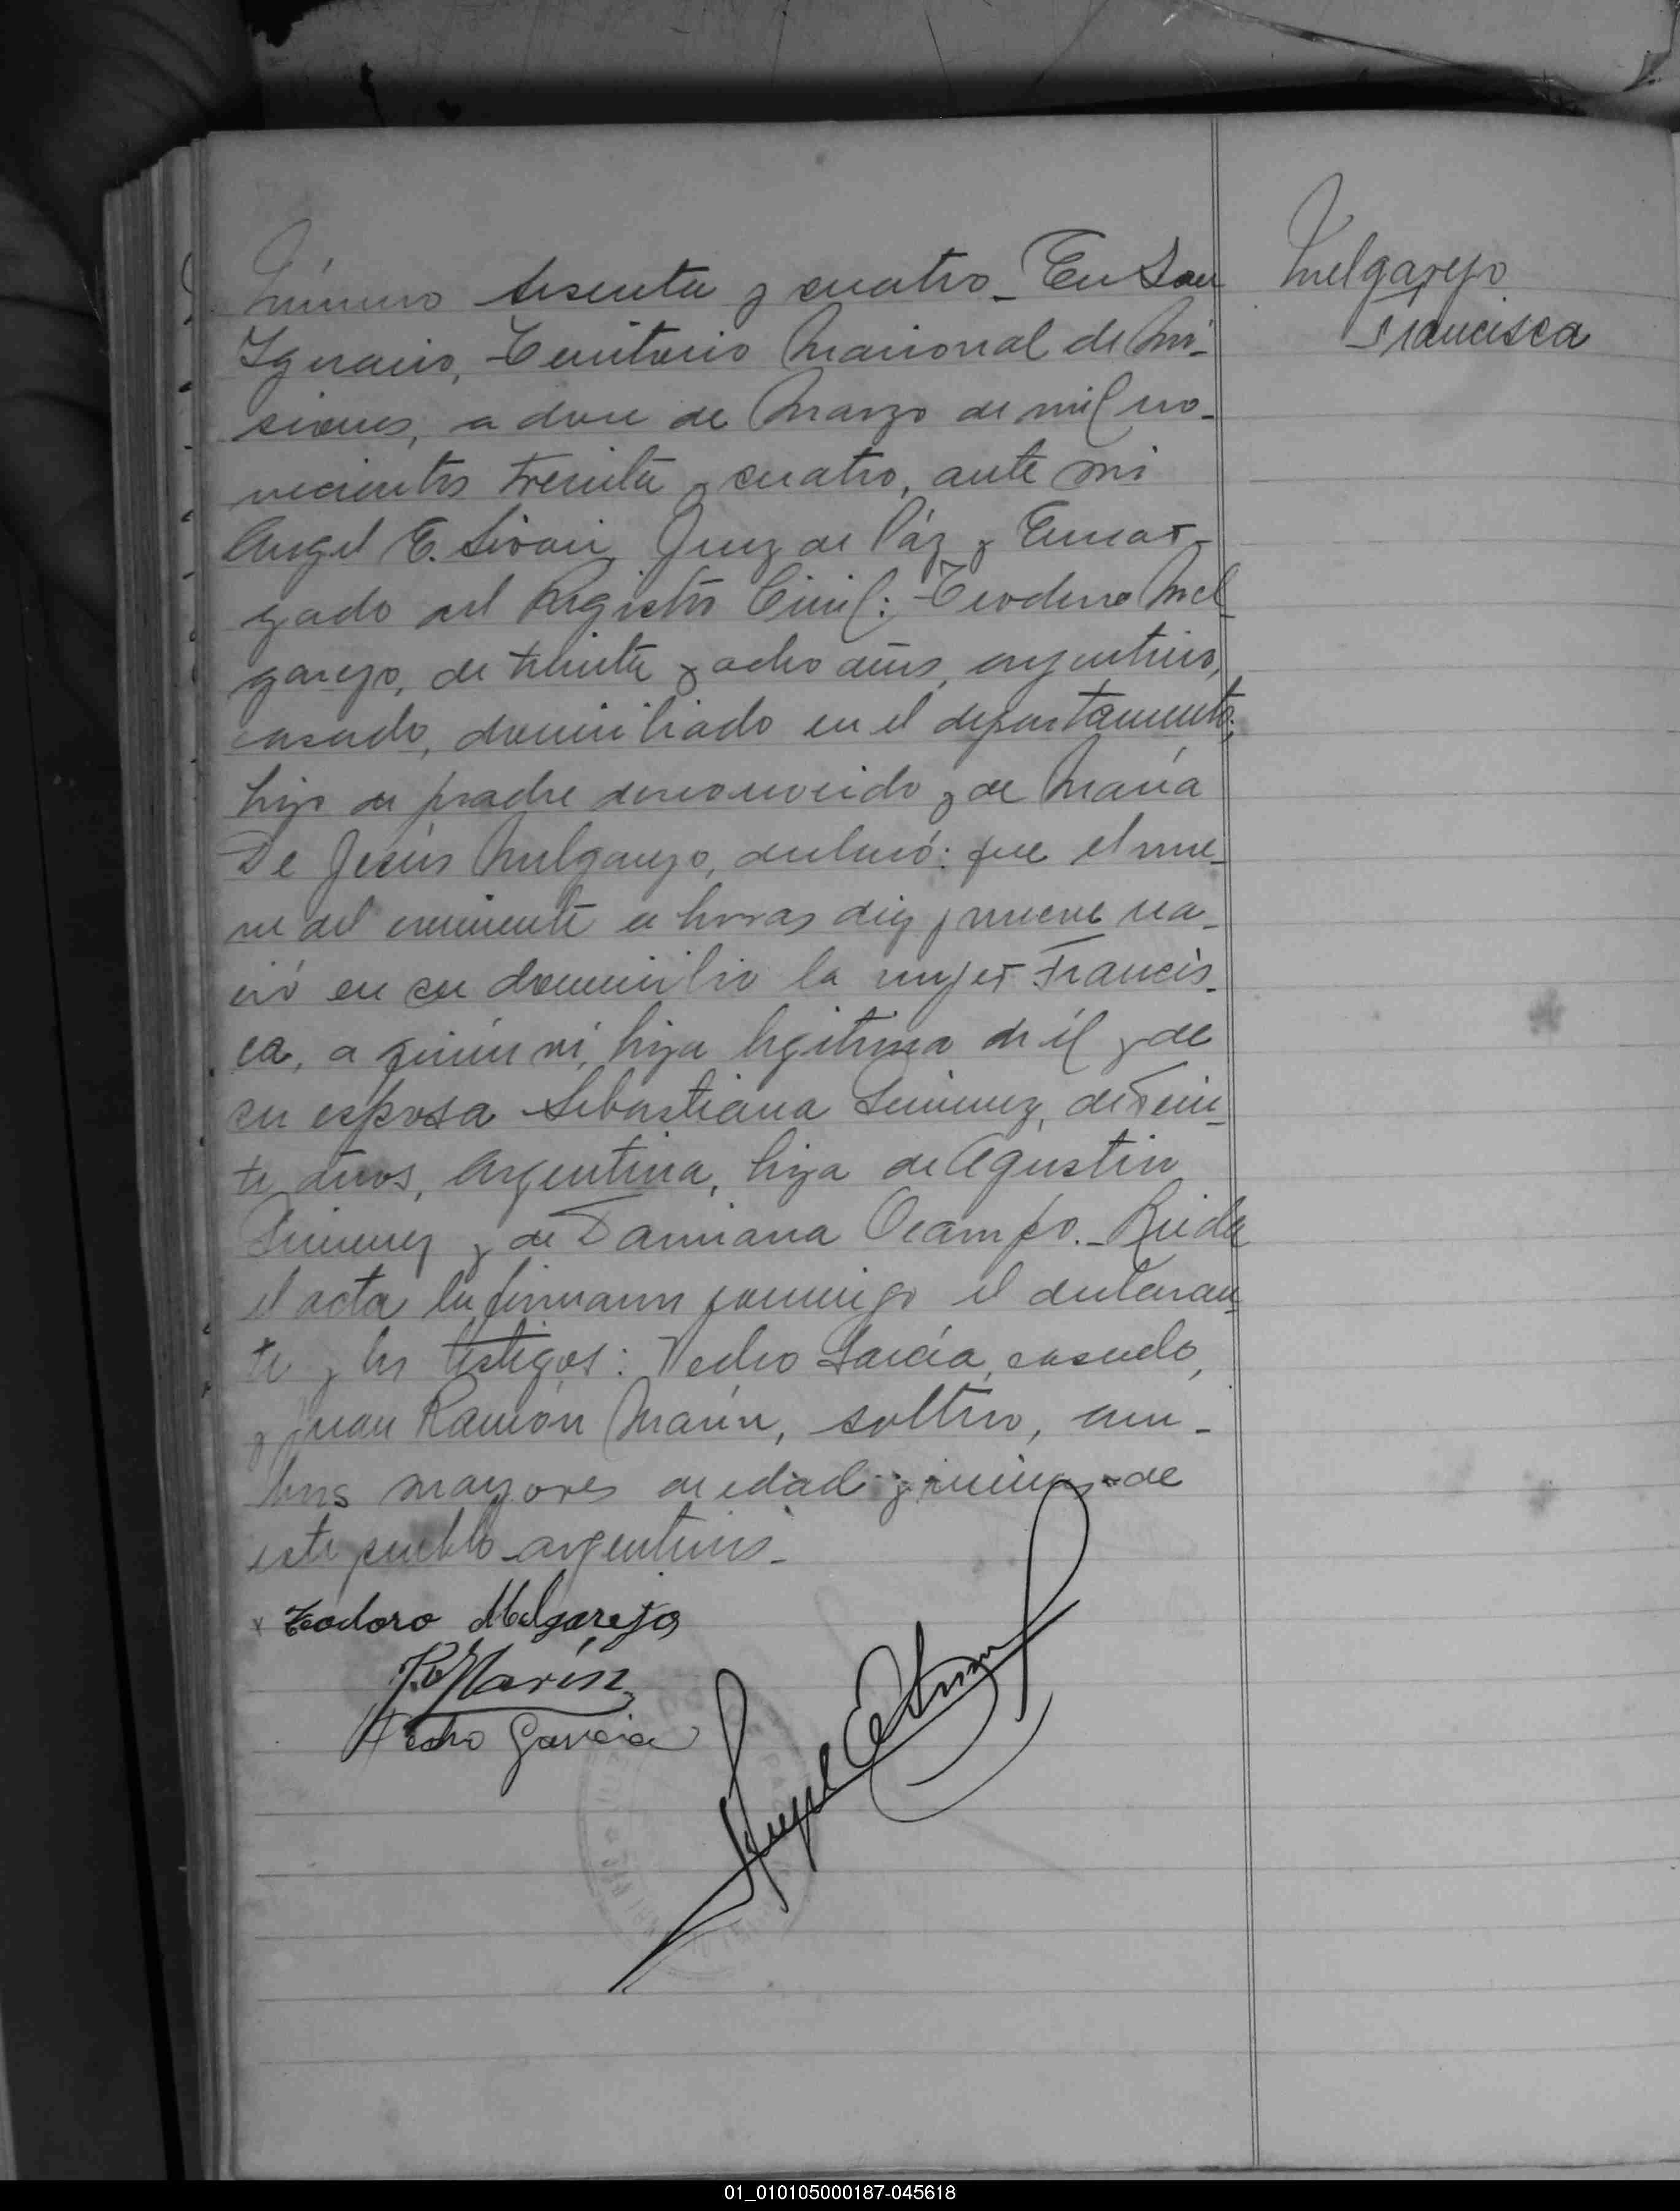 Número sesenta y cuatro_ En San
Ignacio, Territorio Nacional de Mi-
siones, a doce de Marzo de mil no-
vecientos treinta y cuatro, ante mi
Angel E. Juez de Páz y Encar-
gado del Registro Civil: Teodoro Mel
garejo, de treinta y ocho años, argentino,
casado, domiciliado en el departamento;
hijo de padre desconocido y de María
De Jesús Melgarejo, declaró: que el nue-
ve del corriente a horas diez y nueve na-
ció en su domicilio la mujer Francis-
ca, a quien ví, hija legitima de él y de
su esposa Sebastiana Jimenez, de vein-
te años, argentina, hija de Agustin
Jimenez y de Damiana Ocampo._ Leida
el acta la firmaron conmigo el declaran-
te y los testigos: Pedro García, casado,
y Juan Ramón Marín, soltero, am-
bos mayores de edad y vecinos de
este pueblo argentinos_
Melgarejo
Francisca
x Teodoro Melgarejo
J.R. Marín
Pedro Garcia
Angel E.
01_010105000187-045618